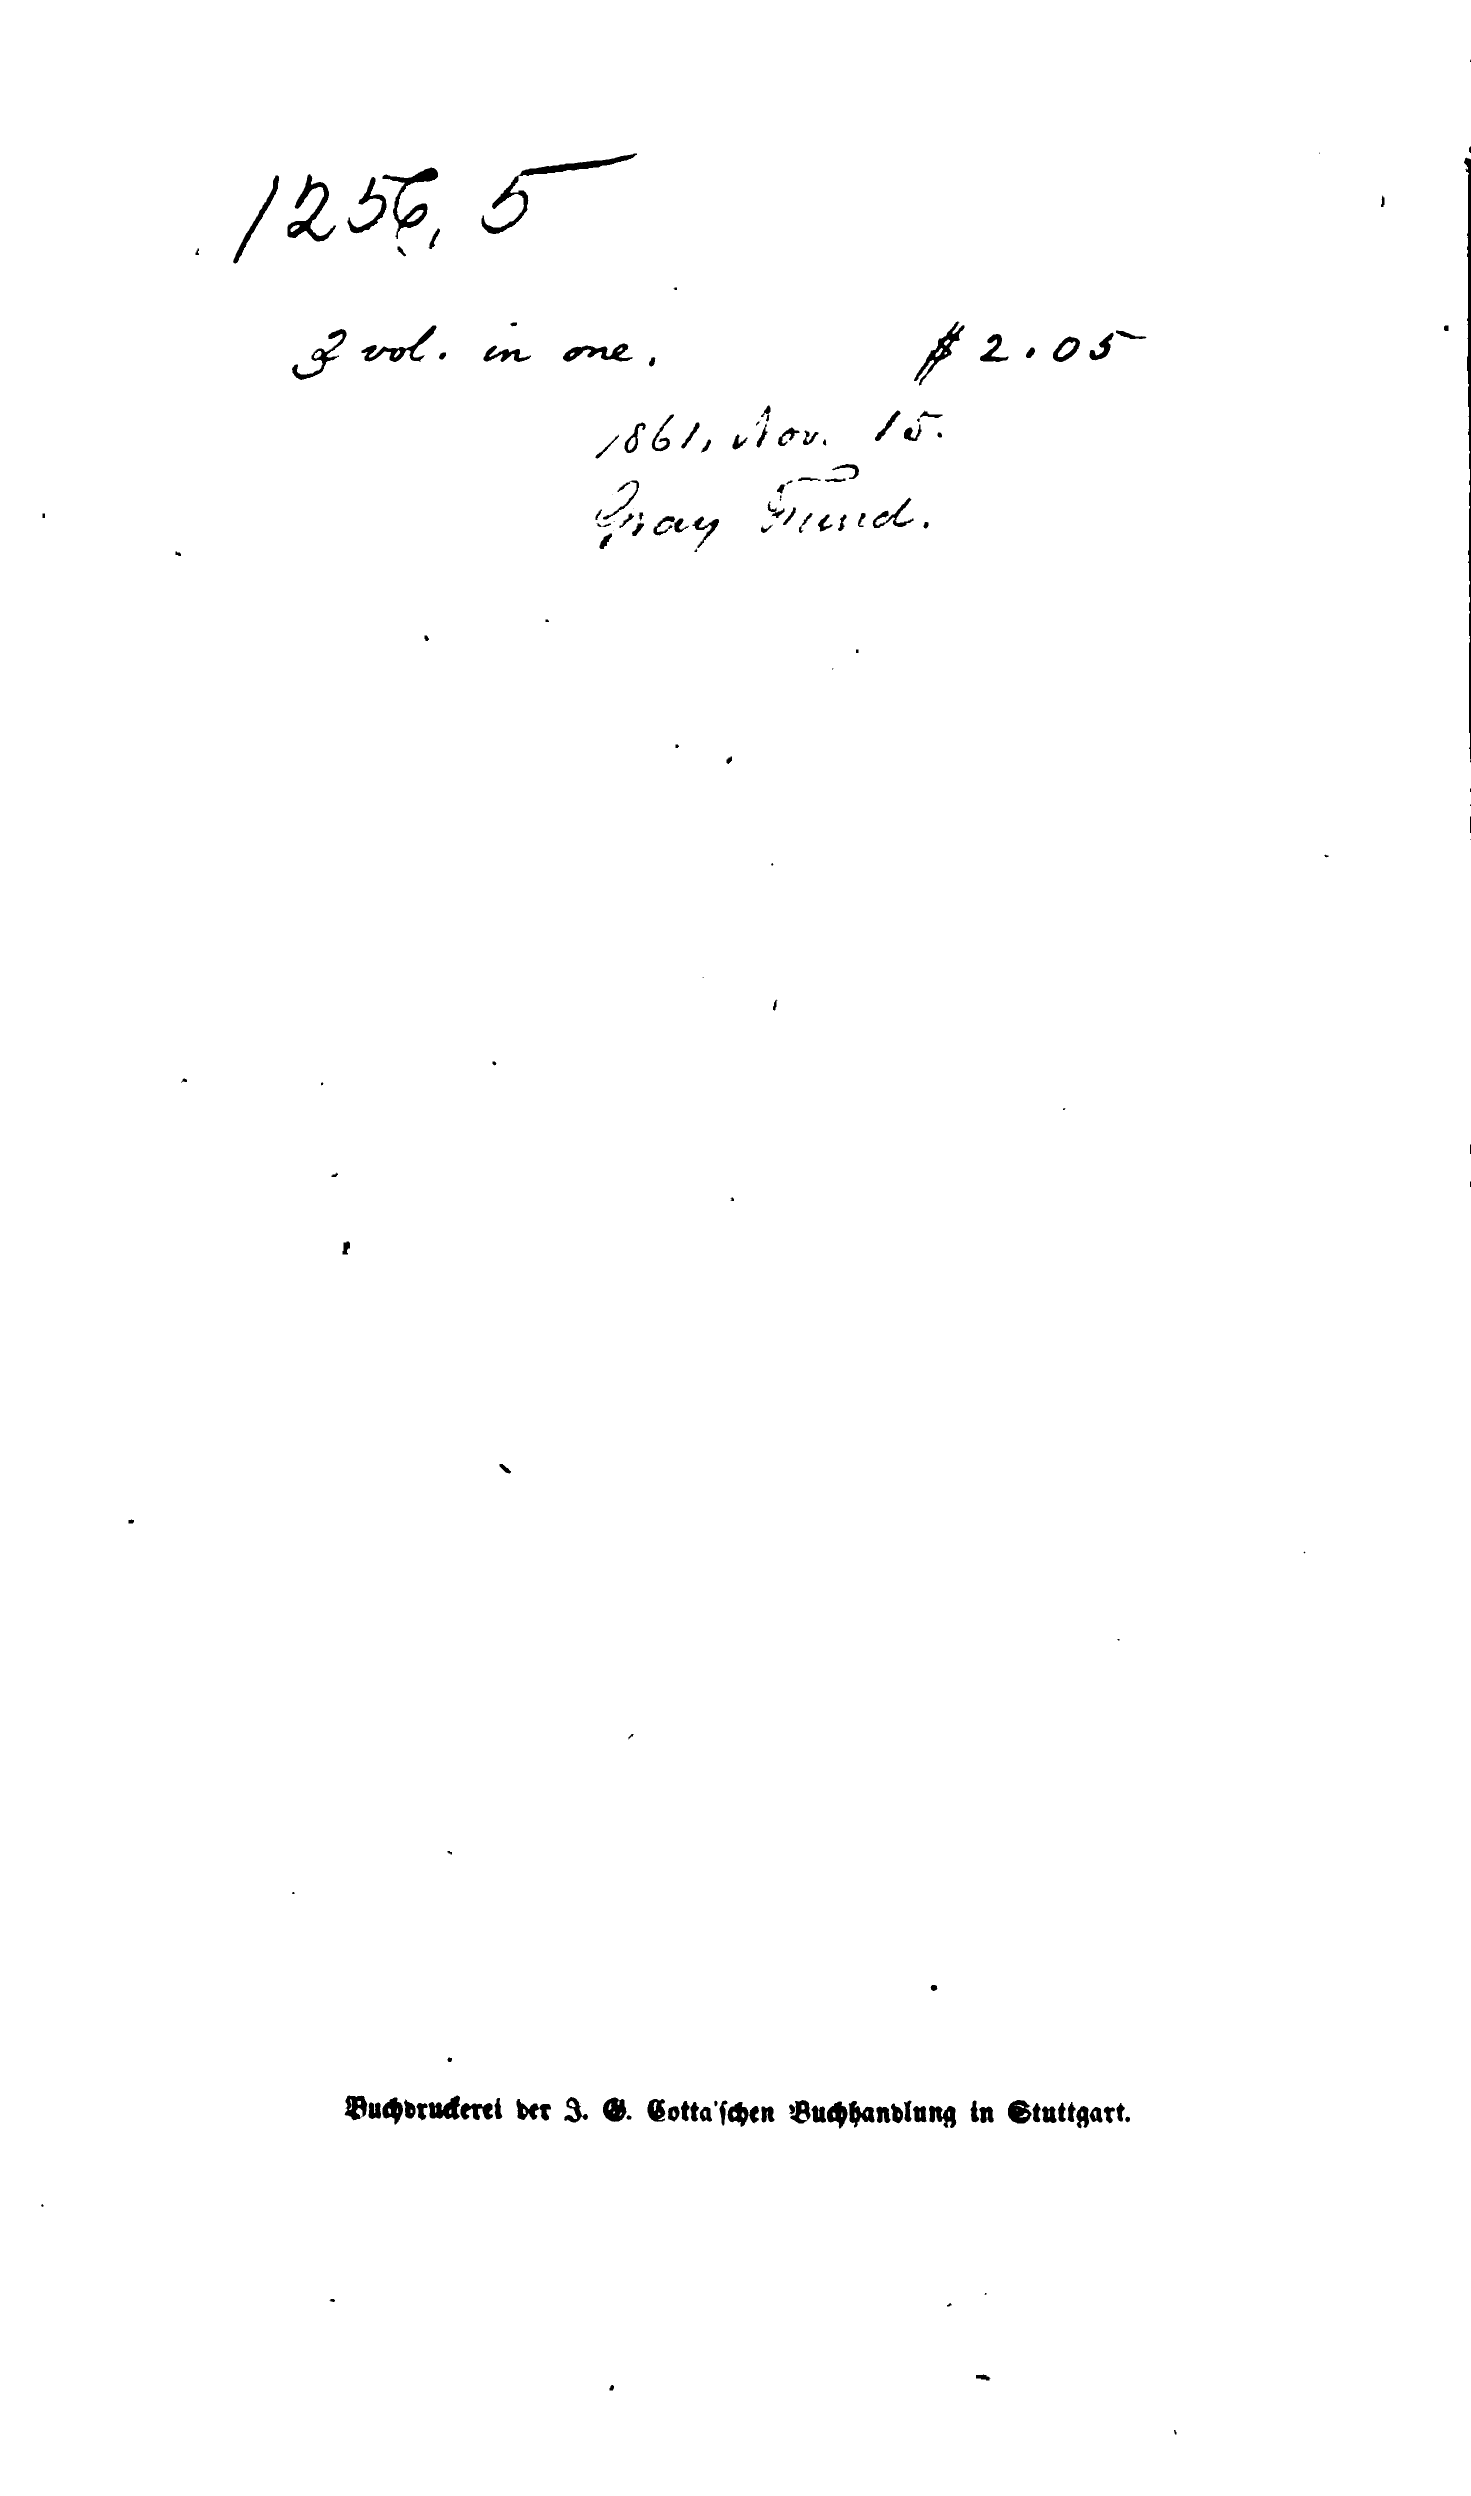 1256, 5
2 vol. in one. $ 2.05
1861, Nov. 15.
Gray Fund.
Buchdruckerei der J. G. Cotta'schen Buchhandlung in Stuttgart.